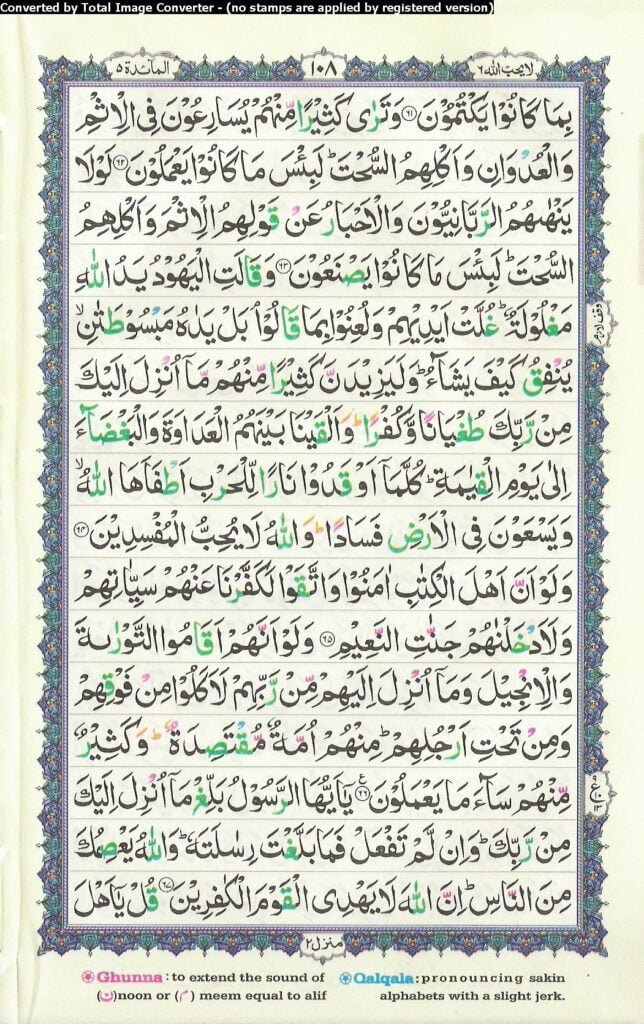 Converted by Total Image Converter - (no stamps are applied by registered version)
لا يحب الله ٦ ١٠٨ المآئدة ٥
بِمَا كَانُوْا يَكْتُمُوْنَ ۝٦١ وَتَرٰى كَثِيْرًا مِّنْهُمْ يُسَارِعُوْنَ فِى الْاِثْمِ
وَالْعُدْوَانِ وَاَكْلِهِمُ السُّحْتَ ؕ لَبِئْسَ مَا كَانُوْا يَعْمَلُوْنَ ۝٦٢ لَوْلَا
يَنْهٰىهُمُ الرَّبَّانِيُّوْنَ وَالْاَحْبَارُ عَنْ قَوْلِهِمُ الْاِثْمَ وَاَكْلِهِمُ
السُّحْتَ ؕ لَبِئْسَ مَا كَانُوْا يَصْنَعُوْنَ ۝٦٣ وَقَالَتِ الْيَهُوْدُ يَدُ اللّٰهِ
مَغْلُوْلَةٌ ؕ غُلَّتْ اَيْدِيْهِمْ وَلُعِنُوْا بِمَا قَالُوْا ۘ بَلْ يَدٰهُ مَبْسُوْطَتٰنِ ۙ
وقف لازم
يُنْفِقُ كَيْفَ يَشَآءُ ؕ وَلَيَزِيْدَنَّ كَثِيْرًا مِّنْهُمْ مَّاۤ اُنْزِلَ اِلَيْكَ
مِنْ رَّبِّكَ طُغْيَانًا وَّكُفْرًا ؕ وَاَلْقَيْنَا بَيْنَهُمُ الْعَدَاوَةَ وَالْبَغْضَآءَ
اِلٰى يَوْمِ الْقِيٰمَةِ ؕ كُلَّمَاۤ اَوْقَدُوْا نَارًا لِّلْحَرْبِ اَطْفَاَهَا اللّٰهُ ۙ
وَيَسْعَوْنَ فِى الْاَرْضِ فَسَادًا ؕ وَاللّٰهُ لَا يُحِبُّ الْمُفْسِدِيْنَ ۝٦٤
وَلَوْ اَنَّ اَهْلَ الْكِتٰبِ اٰمَنُوْا وَاتَّقَوْا لَكَفَّرْنَا عَنْهُمْ سَيِّاٰتِهِمْ
وَلَاَدْخَلْنٰهُمْ جَنّٰتِ النَّعِيْمِ ۝٦٥ وَلَوْ اَنَّهُمْ اَقَامُوا التَّوْرٰىةَ
وَالْاِنْجِيْلَ وَمَاۤ اُنْزِلَ اِلَيْهِمْ مِّنْ رَّبِّهِمْ لَاَكَلُوْا مِنْ فَوْقِهِمْ
وَمِنْ تَحْتِ اَرْجُلِهِمْ ؕ مِنْهُمْ اُمَّةٌ مُّقْتَصِدَةٌ ؕ وَكَثِيْرٌ
مِّنْهُمْ سَآءَ مَا يَعْمَلُوْنَ ۝٦٦ يٰۤاَيُّهَا الرَّسُوْلُ بَلِّغْ مَاۤ اُنْزِلَ اِلَيْكَ
مِنْ رَّبِّكَ ؕ وَاِنْ لَّمْ تَفْعَلْ فَمَا بَلَّغْتَ رِسٰلَتَهٗ ؕ وَاللّٰهُ يَعْصِمُكَ
مِنَ النَّاسِ ؕ اِنَّ اللّٰهَ لَا يَهْدِى الْقَوْمَ الْكٰفِرِيْنَ ۝٦٧ قُلْ يٰۤاَهْلَ
منزل ٢
Ghunna: to extend the sound of (ن)noon or (م) meem equal to alif
Qalqala: pronouncing sakin alphabets with a slight jerk.